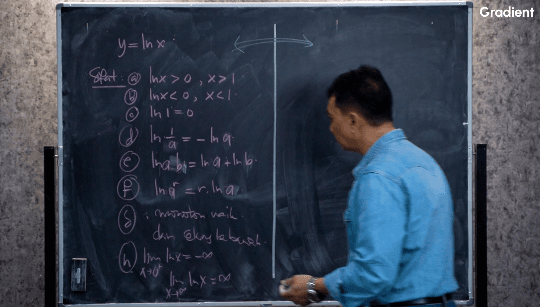 Gradient
y = ln x
Sifat : (a) ln x > 0 , x > 1
(b) ln x < 0 , x < 1.
(c) ln 1 = 0
(d) ln 1/a = - ln a
(e) ln a.b = ln a + ln b.
(f) ln a^r = r. ln a
(g) : monoton naik
dan cekung ke bawah.
(h) lim x→0+ ln x = -∞
lim x→∞ ln x = ∞